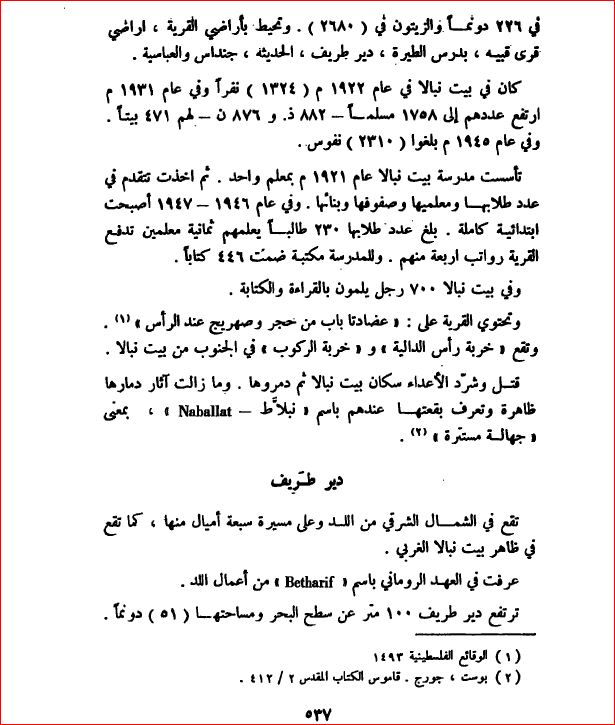 في ٢٢٦ دونمـاً والزيتون في ( ٢٦٨٠ ) . وتحيط بأراضي القرية ، اراضي
قرى قبيه ، بدرس الطيرة ، دير طريف ، الحديثه ، جنداس والعباسية .
كان في بيت نبالا في عام ١٩٢٢ م ( ١٣٢٤ ) نفراً وفي عام ١٩٣١ م
ارتفع عددهم إلى ١٧٥٨ مسلمـاً – ٨٨٢ ذ. و ٨٧٦ ن – لهم ٤٧١ بيتاً .
وفي عام ١٩٤٥ م بلغوا ( ٢٣١٠ ) نفوس .
تأسست مدرسة بيت نبالا عام ١٩٢١ م بمعلم واحد . ثم اخذت تتقدم في
عدد طلابهـا ومعلميها وصفوفها وبنائها . وفي عام ١٩٤٦ – ١٩٤٧ أصبحت
ابتدائيـة كاملة . بلغ عدد طلابها ٢٣٠ طالبـاً يعلمهم ثمانية معلمين تدفـع
القرية رواتب اربعة منهم . وللمدرسة مكتبة ضمت ٤٤٦ كتاباً .
وفي بيت نبالا ٧٠٠ رجل يلمون بالقراءة والكتابة .
وتحتوي القرية على : « عضادتا باب من حجر وصهريج عند الرأس » (١) .
وتقع « خربة رأس الدالية » و « خربة الركوب » في الجنوب من بيت نبالا .
قتـل وشرّد الأعداء سكان بيت نبالا ثم دمروها . وما زالت آثار دمارها
ظاهرة وتعرف بقعتهـا عندهم باسم « نبلاَّط – Naballat » ، بمعنى
« جهالـة مستترة » (٢) .
دير طَريف
تقع في الشمـال الشرقي من اللـد وعلى مسيرة سبعة أميال منها ، كما تقع
في ظاهر بيت نبالا الغربي .
عرفت في العهد الروماني باسم « Betharif » من أعمال اللد .
ترتفع دير طريف ١٠٠ متر عن سطح البحر ومساحتهـا ( ٥١ ) دونماً .
( ١ ) الوقائع الفلسطينية ١٤٩٣
( ٢ ) بوست ، جورج . قاموس الكتاب المقدس ٢ / ٤١٢ .
٥٣٧